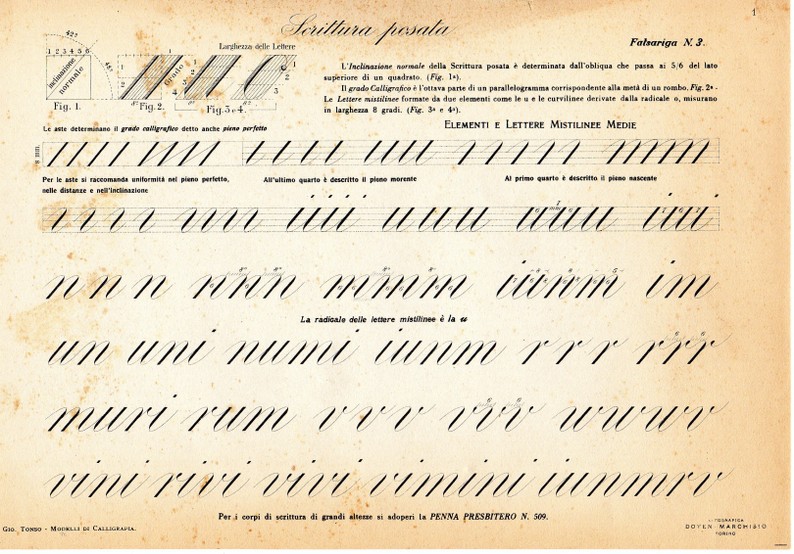 1
Scrittura posata
Falsariga N. 3.
42°
1 2 3 4 5 6
48°
inclinazione normale
Fig. 1.
1
1
2
grado
8°
Fig. 2.
Larghezza delle Lettere
1
2
3
4
8°
8°
Fig. 3 e 4.
L'Inclinazione normale della Scrittura posata è determinata dall'obliqua che passa ai 5/6 del lato
superiore di un quadrato. (Fig. 1ª).
Il grado Calligrafico è l'ottava parte di un parallelogramma corrispondente alla metà di un rombo. Fig. 2ª -
Le Lettere mistilinee formate da due elementi come le u e le curvilinee derivate dalla radicale o, misurano
in larghezza 8 gradi. (Fig. 3ª e 4ª).
Le aste determinano il grado calligrafico detto anche pieno perfetto
ELEMENTI E LETTERE MISTILINEE MEDIE
8 mm.
Per le aste si raccomanda uniformità nel pieno perfetto,
nelle distanze e nell'inclinazione
All'ultimo quarto è descritto il pieno morente
Al primo quarto è descritto il pieno nascente
n n n
im
La radicale delle lettere mistilinee è la u
un uni numi iunm r r r rrr
muri rum v v v vvv wwwv
vini rivi vivi vimini iunmrv
Per i corpi di scrittura di grandi altezze si adoperi la PENNA PRESBITERO N. 509.
GIO. TONSO - MODELLI DI CALLIGRAFIA.
DOYEN MARCHISIO
TORINO